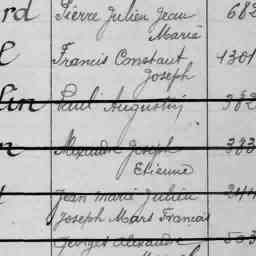 rd Pierre Julien Jean 682
Marie
Francis Constant 1301
Joseph
lin Paul Augustin 382
n Alexandre Joseph 383
Etienne
Jean Marie Julien 344
Joseph Mars Francois
Georges Alexandre 503